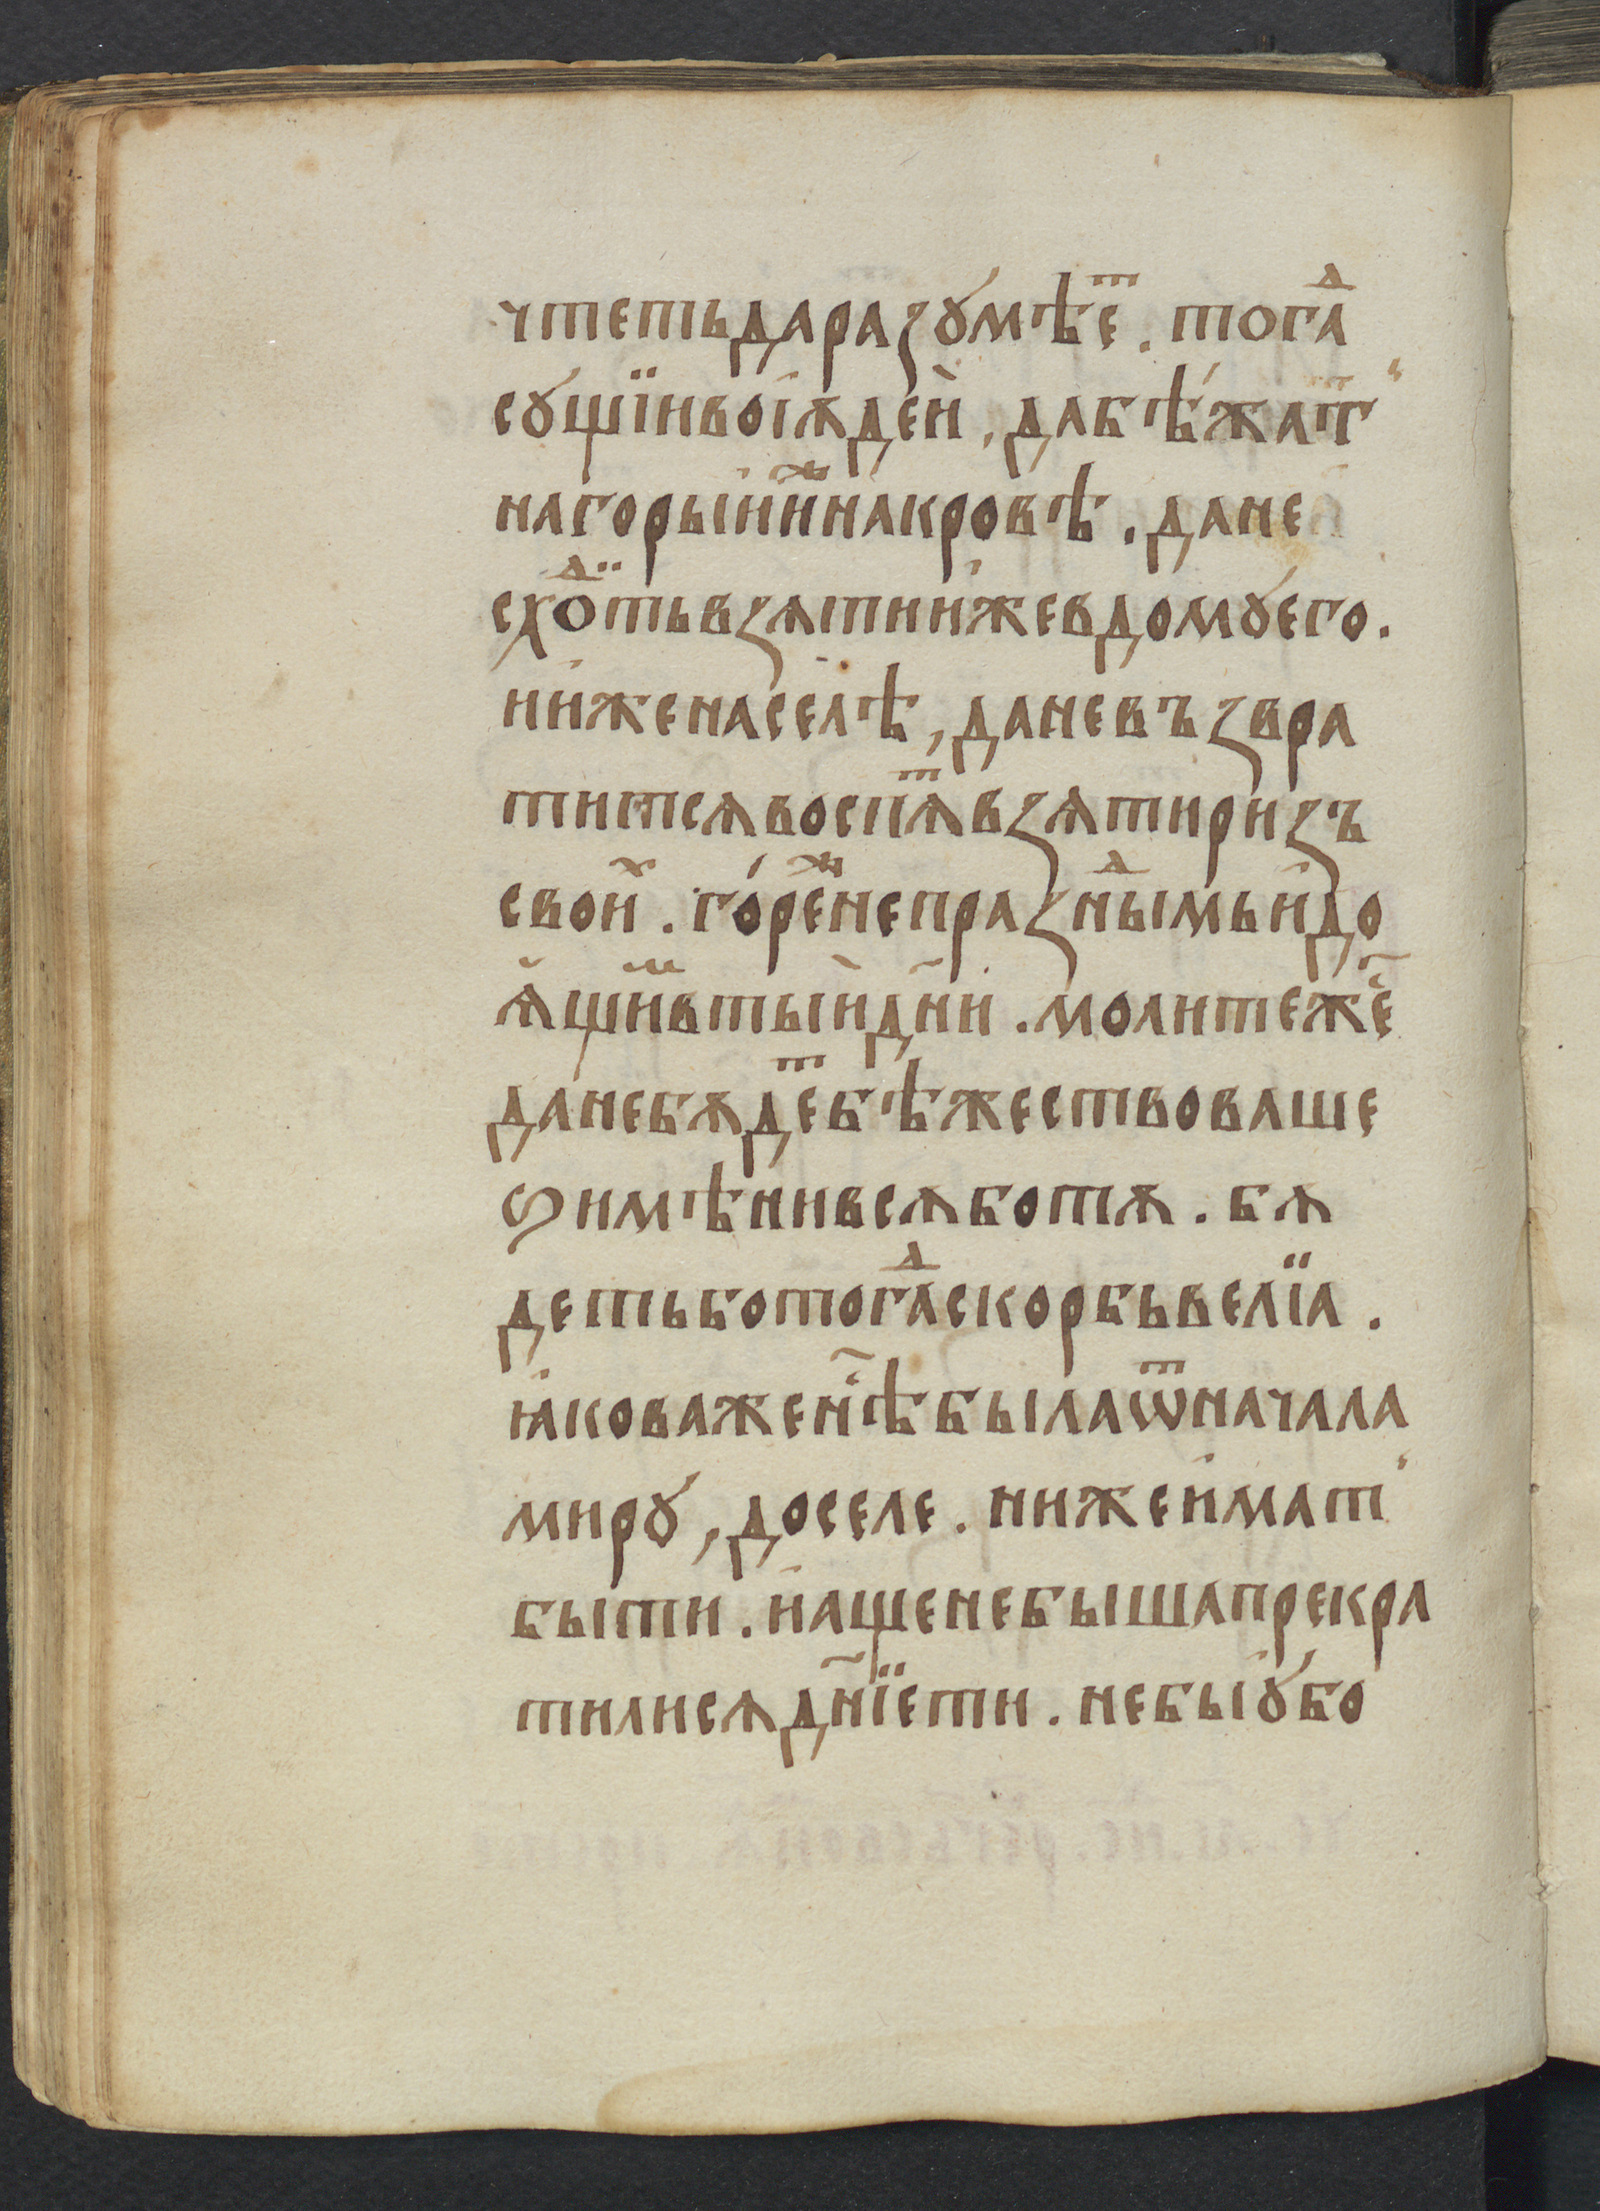 чтетьдаразꙋмѣеⷮ. тогаⷣ
сꙋщїивоіѫдеи̇, дабѣ́жаⷮ
нагорыиⷤ҆и҆накровѣ. дане
схоⷣ҃тьвзѧтии҆жевдомꙋего.
ии҆женаселѣ, даневъзвра
титсѧвоспѧⷮвзѧтиризъ
свои҆ⷯ. го́реⷤнепразⷣнымьи҆до
ѧ҆щиⷨвтыи҆дн҃и. молитеже҃
данебѫдеⷮбѣжествоваше
ѕимѣнивсѫботѫ. бѫ
детьботогаⷣскорбьвелїа.
ꙗ҆коважен҃ѣбылаѿначала
мирꙋ, доселе. нижеи҆мат
быти. и҆ащенебышапрекра
тилисѧдн҃їети. небыꙋ҆бо